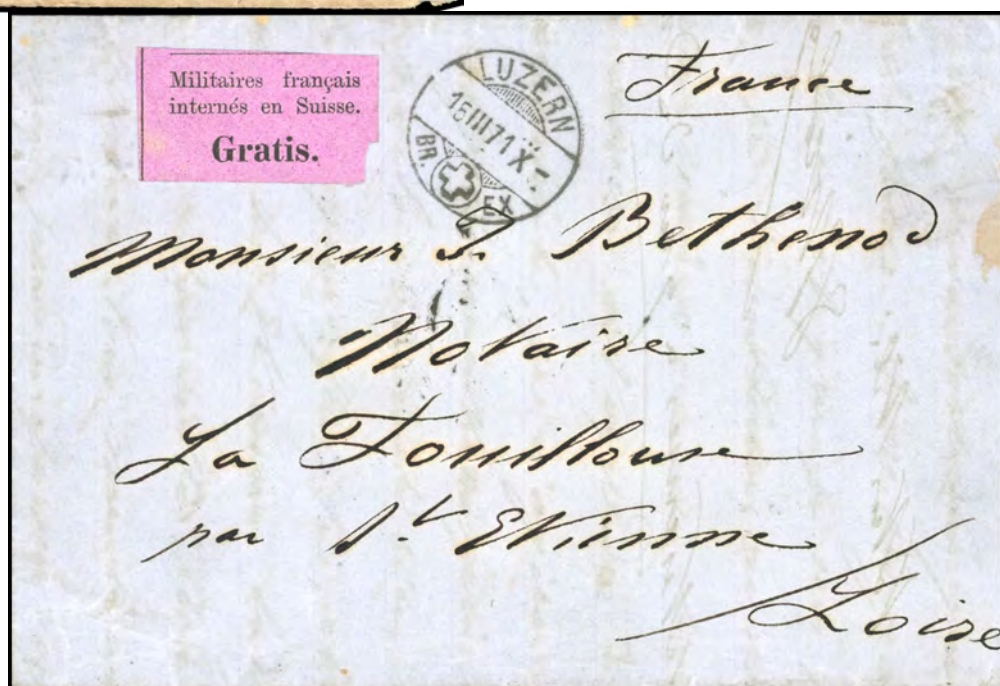 Militaires français
internés en Suisse.
Gratis.
LUZERN
15 III 71 X
BR. EX
France
Monsieur J. Bethenod
Notaire
La Fouillouse
par St. Etienne
Loire